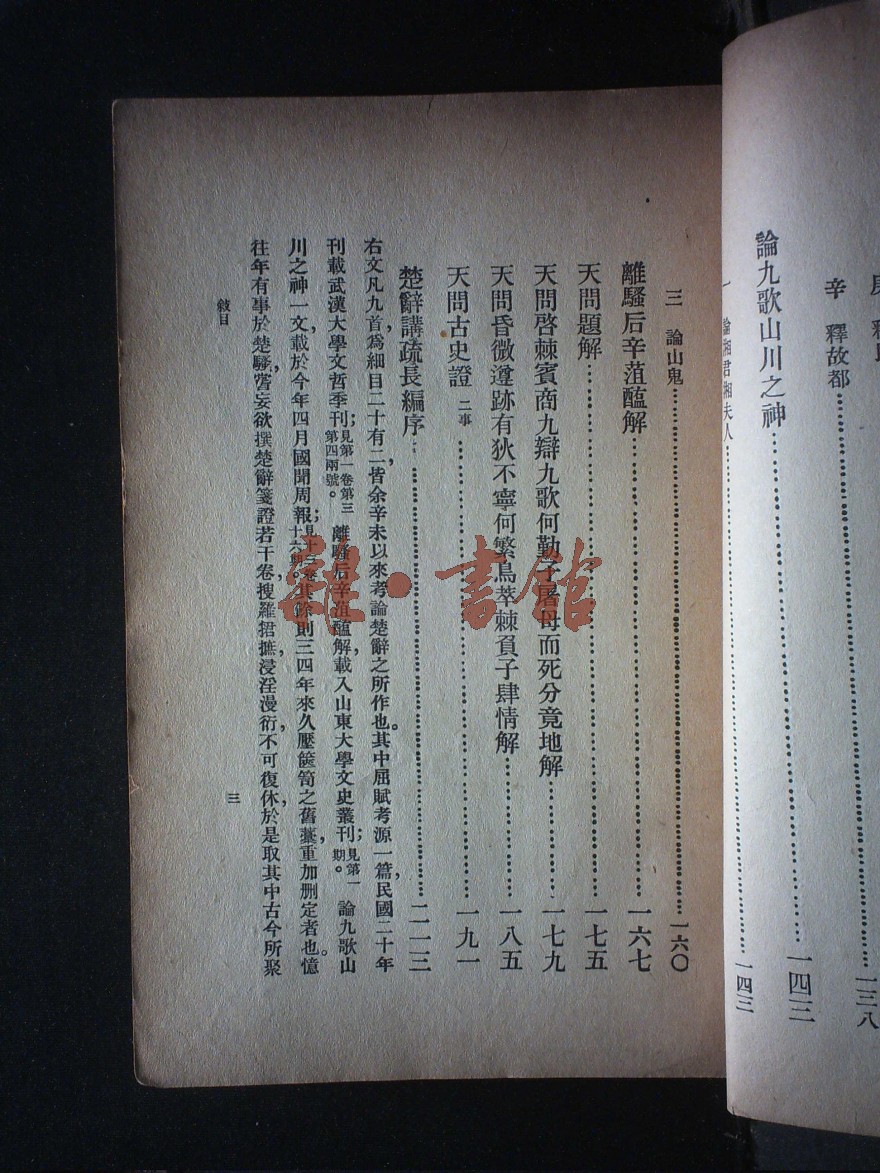 辛　釋故都⋯⋯一三八
論九歌山川之神⋯⋯一四三
一　論湘君湘夫人⋯⋯一四三
三　論山鬼⋯⋯一六〇
離騷后辛菹醢解⋯⋯一六七
天問題解⋯⋯一七五
天問啓棘賓商九辯九歌何勤子屠母而死分竟地解⋯⋯一七九
天問昏微遵跡有狄不寧何繁鳥萃棘負子肆情解⋯⋯一八五
天問古史證 二事⋯⋯一九一
楚辭講疏長編序⋯⋯二一三
右文凡九首，爲細目二十有二，皆余辛未以來考論楚辭之所作也。其中屈賦考源一篇，民國二十年
刊載武漢大學文哲季刊；見第一卷第三第四兩號。離騷后辛菹醢解，載入山東大學文史叢刊；見第一期。論九歌山
川之神一文，載於今年四月國聞周報；見十三卷十六期。其餘則三四年來久壓篋笥之舊藁，重加删定者也。憶
往年有事於楚騷，嘗妄欲撰楚辭箋證若干卷，搜羅捃摭，浸淫漫衍，不可復休，於是取其中古今所聚
敍目
三
雒·書館